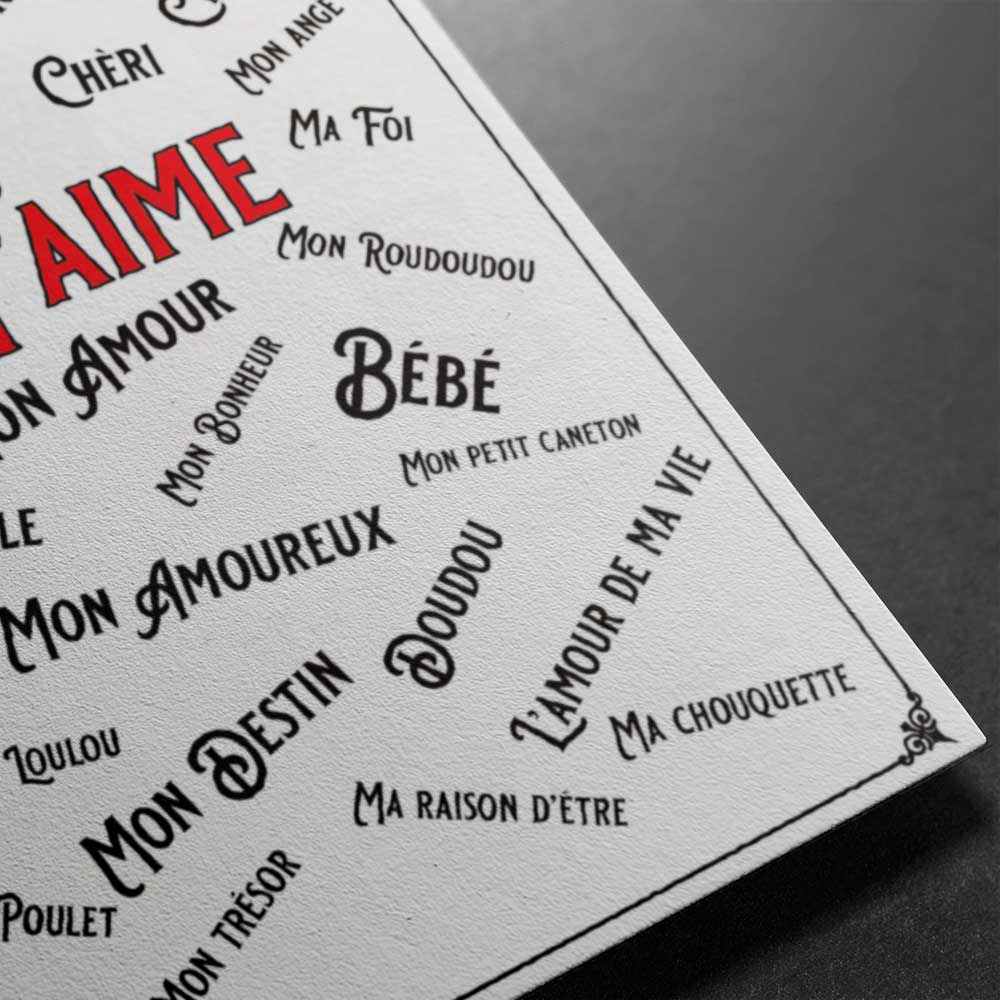 CHÈRI
MON ANGE
MA FOI
'AIME
MON ROUDOUDOU
AMOUR
MON BONHEUR
BÉBÉ
MON PETIT CANETON
LE
MON AMOUREUX
DOUDOU
L'AMOUR DE MA VIE
MA CHOUQUETTE
LOULOU
MON DESTIN
MA RAISON D'ÉTRE
POULET
MON TRÉSOR